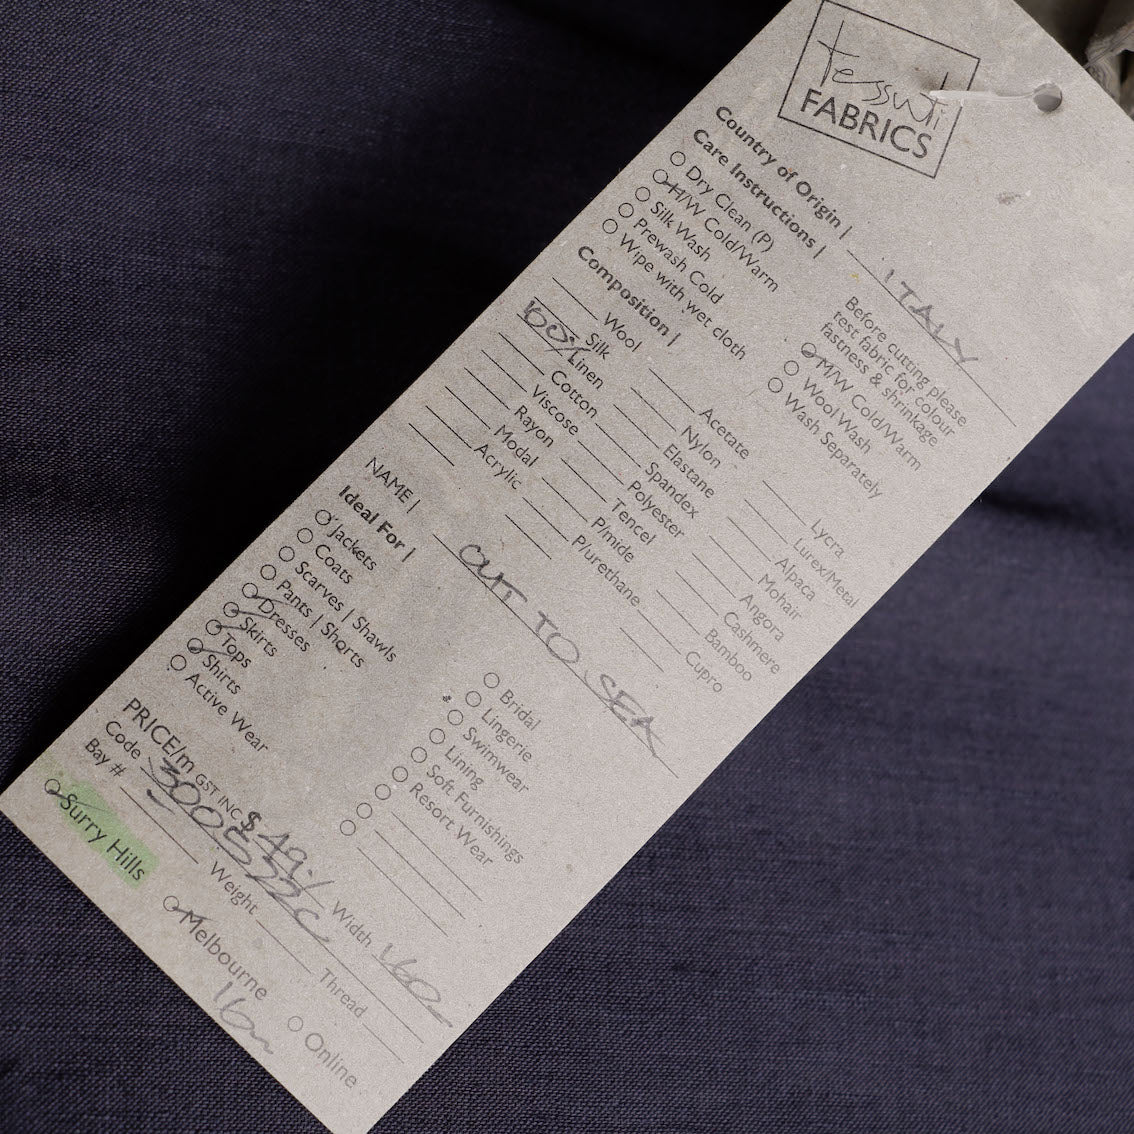 tessuti
FABRICS
Country of Origin | ITALY
Care Instructions |
Dry Clean (P)
H/W Cold/Warm
Silk Wash
Prewash Cold
Wipe with wet cloth
Before cutting please
test fabric for colour
fastness & shrinkage
M/W Cold/Warm
Wool Wash
Wash Separately
Composition |
Wool
Silk
100% Linen
Cotton
Viscose
Rayon
Modal
Acrylic
Acetate
Nylon
Elastane
Spandex
Polyester
Tencel
P/mide
P/urethane
Lycra
Lurex/Metal
Alpaca
Mohair
Angora
Cashmere
Bamboo
Cupro
NAME | OUT TO SEA
Ideal For |
Jackets
Coats
Scarves | Shawls
Pants | Shorts
Dresses
Skirts
Tops
Shirts
Active Wear
Bridal
Lingerie
Swimwear
Lining
Soft Furnishings
Resort Wear
PRICE/m GST INC $49./ Width 160
Code Thread
Bay # Weight
Surry Hills
Melbourne
Online
16m